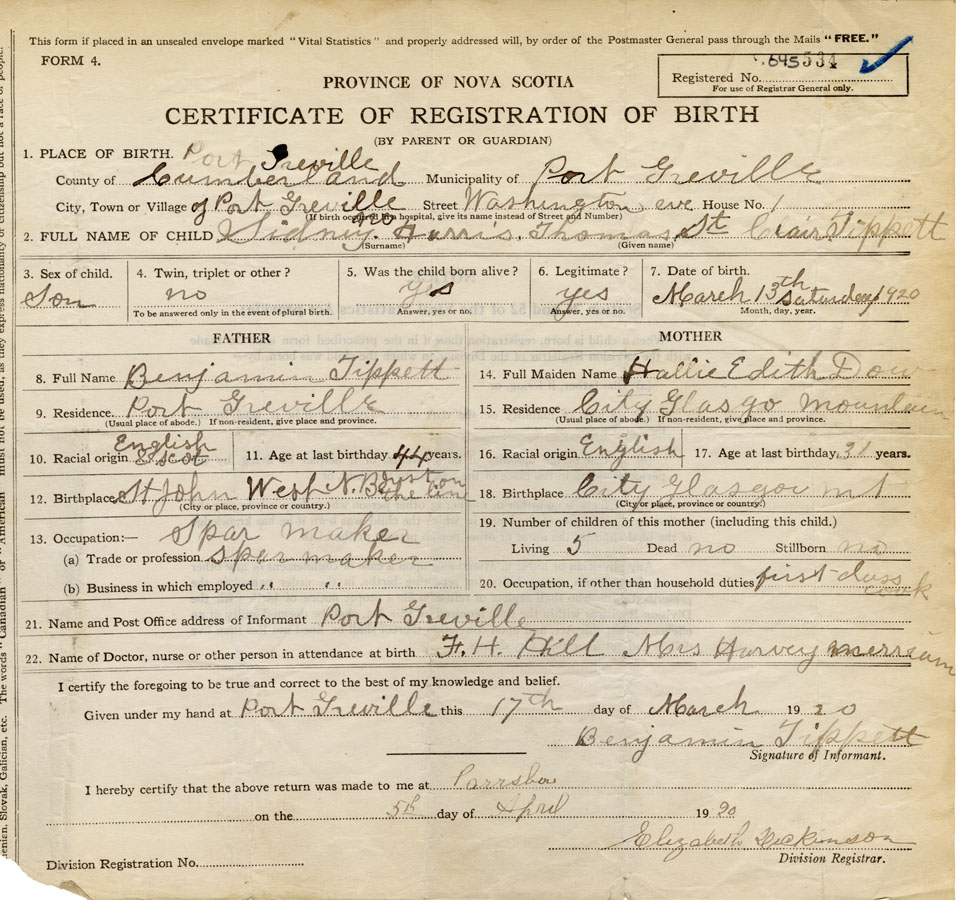 This form if placed in an unsealed envelope marked "Vital Statistics" and properly addressed will, by order of the Postmaster General pass through the Mails "FREE."
FORM 4.
645534
PROVINCE OF NOVA SCOTIA
Registered No.
For use of Registrar General only.
CERTIFICATE OF REGISTRATION OF BIRTH
(BY PARENT OR GUARDIAN)
1. PLACE OF BIRTH. Port Greville
County of Cumberland Municipality of Port Greville
City, Town or Village of Port Greville Street Washington ave House No. 1
(If birth occurred in a hospital, give its name instead of Street and Number)
2. FULL NAME OF CHILD Sidney Harris Thomas St Clair Tippett
(Surname) (Given name)
3. Sex of child. 4. Twin, triplet or other? 5. Was the child born alive? 6. Legitimate? 7. Date of birth.
Son no yes yes March 13th Saturday 1920
To be answered only in the event of plural birth. Answer, yes or no. Answer, yes or no. Month, day, year.
FATHER
MOTHER
8. Full Name Benjamin Tippett
14. Full Maiden Name Hallie Edith Dow
9. Residence. Port Greville
(Usual place of abode.) If non-resident, give place and province.
15. Residence City Glasgo mountain
(Usual place of abode.) If non-resident, give place and province.
10. Racial origin English & Scot 11. Age at last birthday 44 years.
16. Racial origin English 17. Age at last birthday, 31 years.
12. Birthplace St John West N.B. just on the line
(City or place, province or country.)
18. Birthplace City Glasgow mt
(City or place, province or country.)
13. Occupation:— Spar maker
(a) Trade or profession spar maker
(b) Business in which employed " "
19. Number of children of this mother (including this child.)
Living 5 Dead no Stillborn no
20. Occupation, if other than household duties first class cook
21. Name and Post Office address of Informant Port Greville
22. Name of Doctor, nurse or other person in attendance at birth F. H. Hill Mrs Harvey merriam
I certify the foregoing to be true and correct to the best of my knowledge and belief.
Given under my hand at Port Greville this 17th day of March 1920
Benjamin Tippett
Signature of Informant.
I hereby certify that the above return was made to me at Parrsboro
on the 5th day of April 1920
Elizabeth Dickinson
Division Registrar.
Division Registration No.